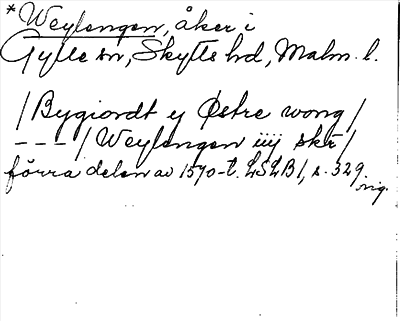 *Weylengen, åker i
Gylle sn, Skytts hd, Malm. l.
/Bygiordt ej Østre wong/
---/Weylengen iiij skr/
förra delen av 1570-t. LSLB1, s. 329.
orig.